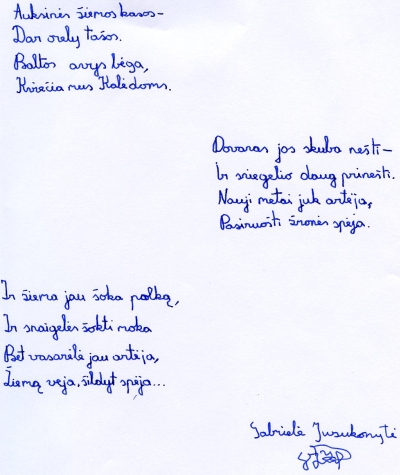 Auksinės žiemos kasos-
Dar orely tąsos.
Baltos avys bėga,
Kviečia mus Kalėdoms.
Dovanas jos skuba nešti-
Ir sniegelio daug prinešti.
Nauji metai juk artėja,
Pasiruošti žmonės spėja.
Ir žiema jau šoka polką,
Ir snaigelės šokti moka
Bet vasarėlė jau artėja,
Žiemą veja, šildyt spėja...
Gabrielė Jusukonytė